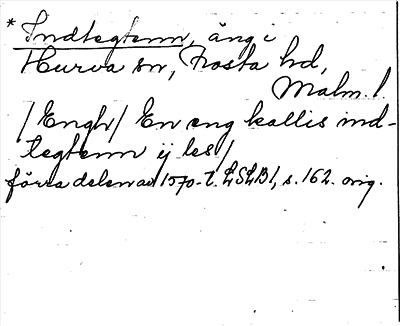 * Indtegtenn, äng i
Hurva sn, Frosta hd,
Malm. l
/Engh/ En eng kallis ind-
tegtenn ij les/
förra delen av 1570-t. LSLB1, s. 162. orig.